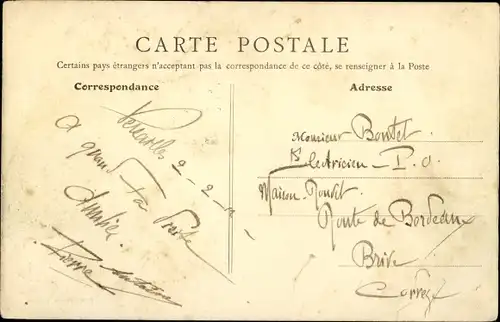 CARTE POSTALE
Certains pays étrangers n'acceptant pas la correspondance de ce côté, se renseigner à la Poste
Correspondance
Adresse
Versailles 2-2-
A quand ta
Amitiés
Pierre
Monsieur Boutet
Electricien
Maison
Route de Bordeaux
Brive
Corrèze